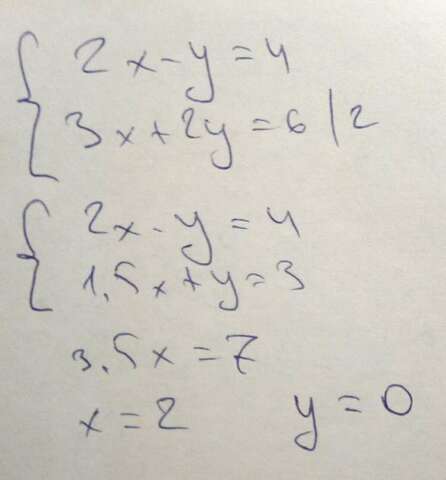 2x-y=4
3x+2y=6 | 2
2x-y=4
1.5x+y=3
3.5x=7
x=2 y=0